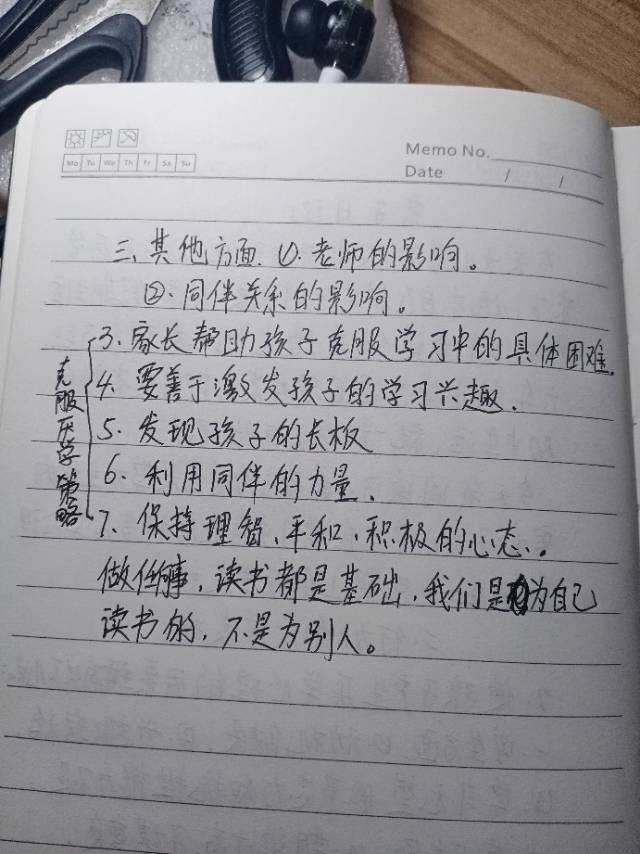 Mo Tu We Th Fr Sa Su
Memo No.
Date / /
三、其他方面. ①. 老师的影响。
②. 同伴关系的影响。
克服厌学策略
3. 家长帮助孩子克服学习中的具体困难.
4. 要善于激发孩子的学习兴趣.
5. 发现孩子的长板
6. 利用同伴的力量.
7. 保持理智、平和、积极的心态.
做任何事,读书都是基础,我们是为自己
读书的,不是为别人。